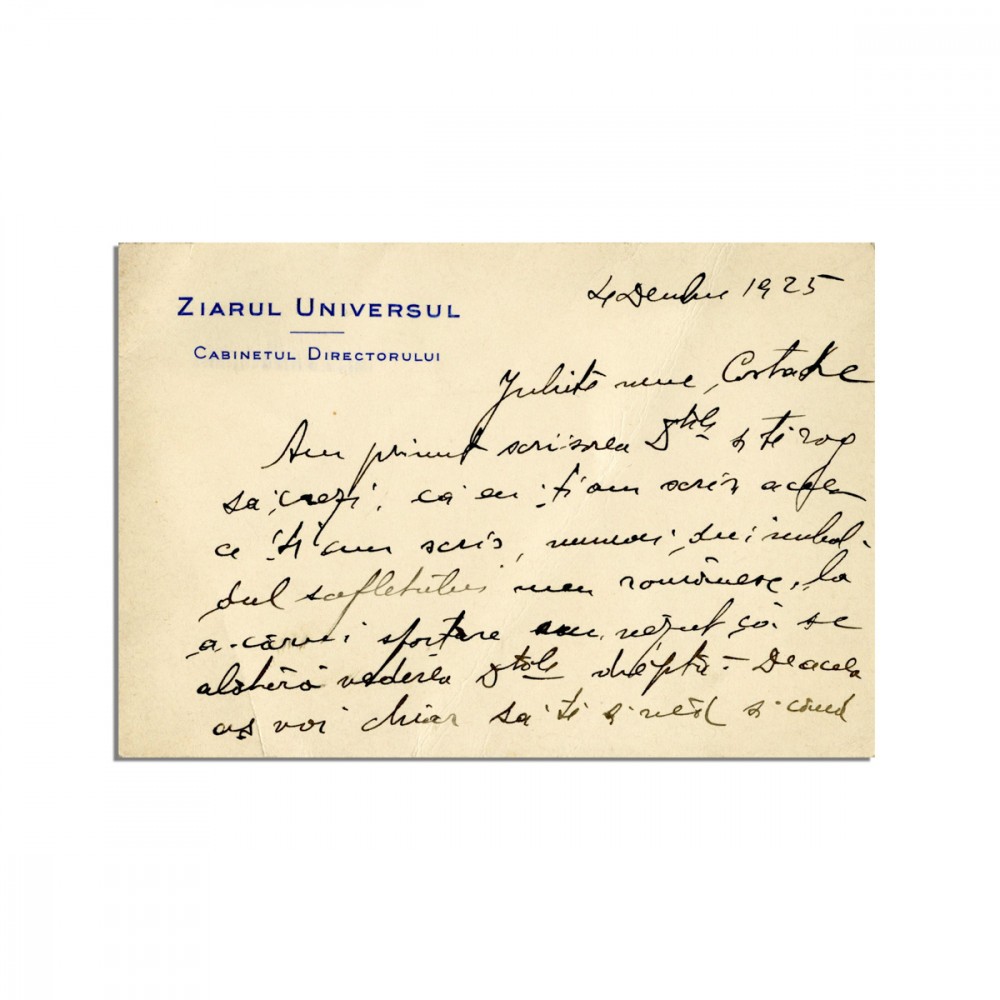 ZIARUL UNIVERSUL
CABINETUL DIRECTORULUI
1925
Iubite nene, Costake
Am primit scrisorea Dtole și te rog
să crezi, că eu ți am scris aceea
ce ți am scris, numai din imbol-
dul sufletului meu românesc, la
a cărui sforțare am văzut că se
alătură vederea Dtole dreptă. - De aceea
aș voi chiar să te și văd și când